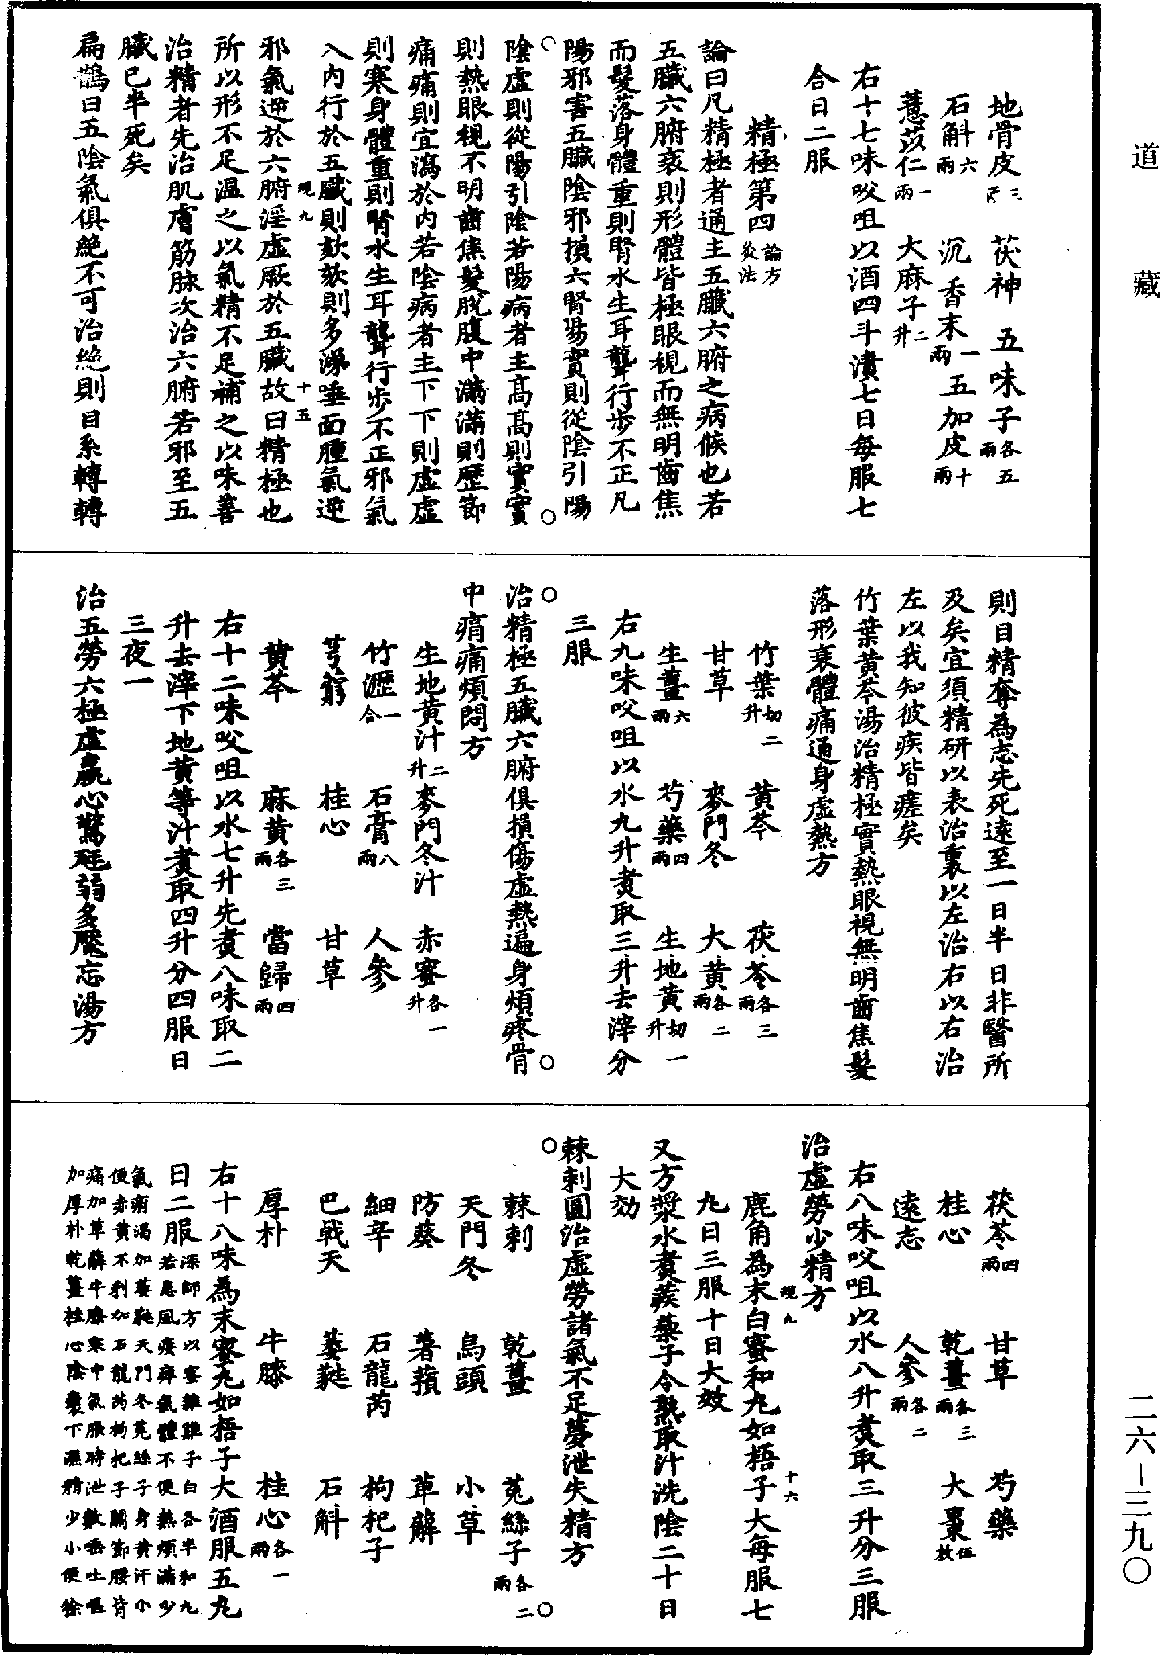 道藏
地骨皮三兩　茯神　五味子各五兩
石斛六兩　沉香末一兩　五加皮十兩
薏苡仁一兩　大麻子二升
右十七味㕮咀以酒四斗漬七日每服七
合日二服
精極第四論方灸法
論曰凡精極者通主五臟六腑之病候也若
五臟六腑衰則形體皆極眼視而無明齒焦
而髮落身體重則腎水生耳聾行步不正凡
陽邪害五臟陰邪損六腎陽實則從陰引陽
陰虛則從陽引陰若陽病者主高高則實實
則熱眼視不明齒焦髮脫腹中滿滿則歷節
痛痛則宜瀉於內若陰病者主下下則虛虛
則寒身體重則腎水生耳聾行步不正邪氣
入內行於五臟則欬欬則多涕唾面腫氣逆
覡九
邪氣逆於六腑淫虛厥於五臟故曰精極也
十五
所以形不足溫之以氣精不足補之以味善
治精者先治肌膚筋脉次治六腑若邪至五
臟已半死矣
扁鵲曰五陰氣俱絕不可治絕則目系轉轉
則目精奪為志先死遠至一日半日非醫所
及矣宜須精研以表治裏以左治右以右治
左以我知彼疾皆瘥矣
竹葉黃芩湯治精極實熱眼視無明齒焦髮
落形衰體痛通身虛熱方
竹葉切二升　黃芩　茯苓各三兩
甘草　麥門冬　大黃各二兩
生薑六兩　芍藥四兩　生地黃切一升
右九味㕮咀以水九升煮取三升去滓分
三服
治精極五臟六腑俱損傷虛熱遍身煩疼骨
中痟痛煩悶方
生地黃汁二升　麥門冬汁　赤蜜各一升
竹瀝一合　石膏八兩　人參
芎藭　桂心　甘草
黃芩　麻黃各三兩　當歸四兩
右十二味㕮咀以水七升先煮八味取二
升去滓下地黃等汁煮取四升分四服日
三夜一
治五勞六極虛羸心驚尪弱多魘忘湯方
茯苓四兩　甘草　芍藥
桂心　乾薑各三兩　大棗伍枚
遠志　人參各二兩
右八味㕮咀以水八升煮取三升分三服
治虛勞少精方
覡九　十六
鹿角為末白蜜和丸如梧子大每服七
九日三服十日大效
又方漿水煮蒺蔾子令熟取汁洗陰二十日
大効
棘刺圓治虛勞諸氣不足夢泄失精方
棘刺　乾薑　菟絲子各二兩
天門冬　烏頭　小草
防葵　薯蕷　萆薢
細辛　石龍芮　枸杞子
巴戟天　萎蕤　石斛
厚朴　牛膝　桂心各一兩
右十八味為末蜜丸如梧子大酒服五丸
日二服深師方以蜜雜雞子白各半和丸若患風痿痺氣體不便熱煩滿少
氣消渴加葳蕤天門冬菟絲子身黃汗小便赤黃不利加石龍芮枸杞子關節腰背
痛加萆薢牛膝寒中氣脹時泄數唾吐嘔加厚朴乾薑桂心陰囊下濕精少小便徐
二六—三九〇